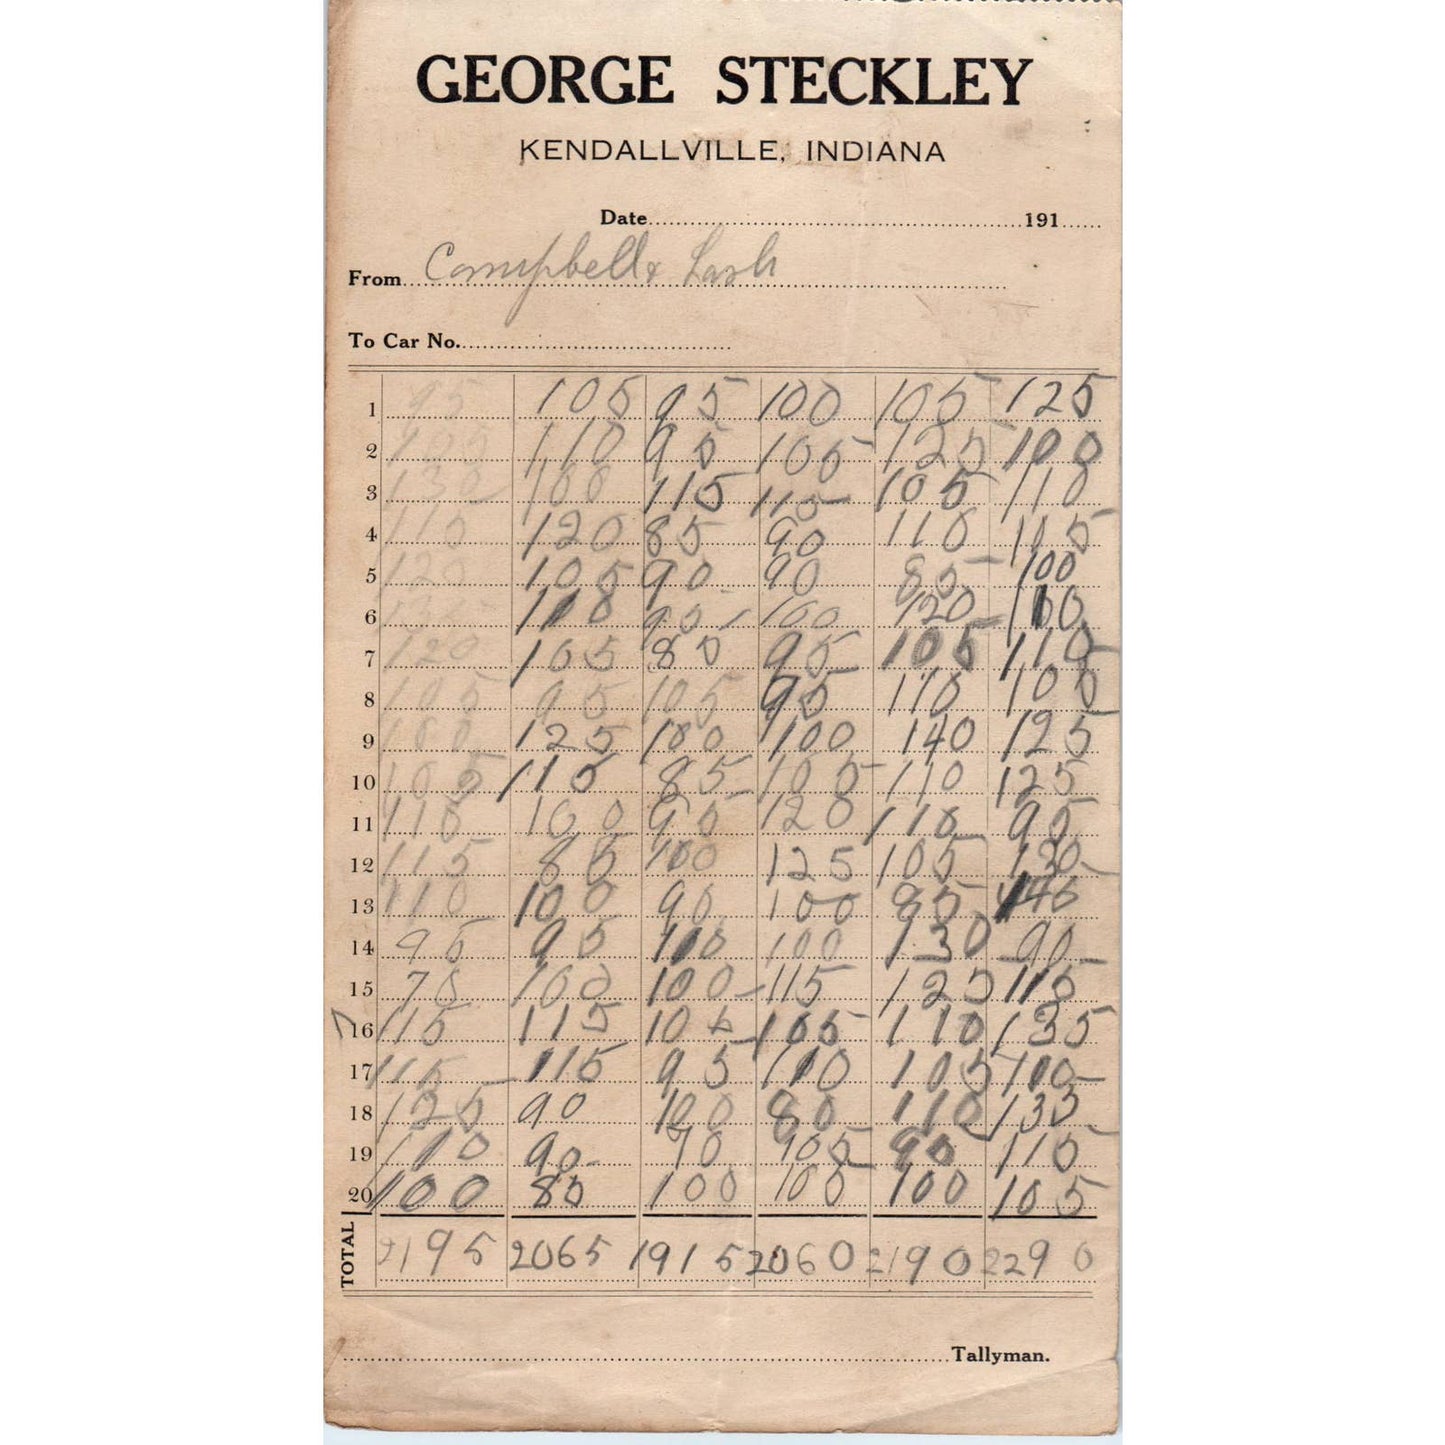 GEORGE STECKLEY
KENDALLVILLE, INDIANA
Date 191
From Campbell & Lash
To Car No.
1 95 105 95 100 105 125
2 105 110 95 105 125 100
3 130 100 115 115 105 110
4 110 120 85 90 110 115
5 120 105 90 90 85 100
6 110 90 100 120 100
7 120 105 80 95 105 110
8 105 95 105 95 110 100
9 100 125 100 100 140 125
10 105 115 85 105 110 125
11 110 100 95 120 110 95
12 115 85 100 125 105 130
13 110 100 90 100 85 140
14 95 95 110 100 130 90
15 70 100 100 115 125 115
16 115 115 105 105 110 135
17 115 115 95 110 105 110
18 125 90 100 80 110 135
19 110 90 90 105 90 110
20 100 80 100 100 100 105
TOTAL 2195 2065 1915 2060 2190 2290
Tallyman.